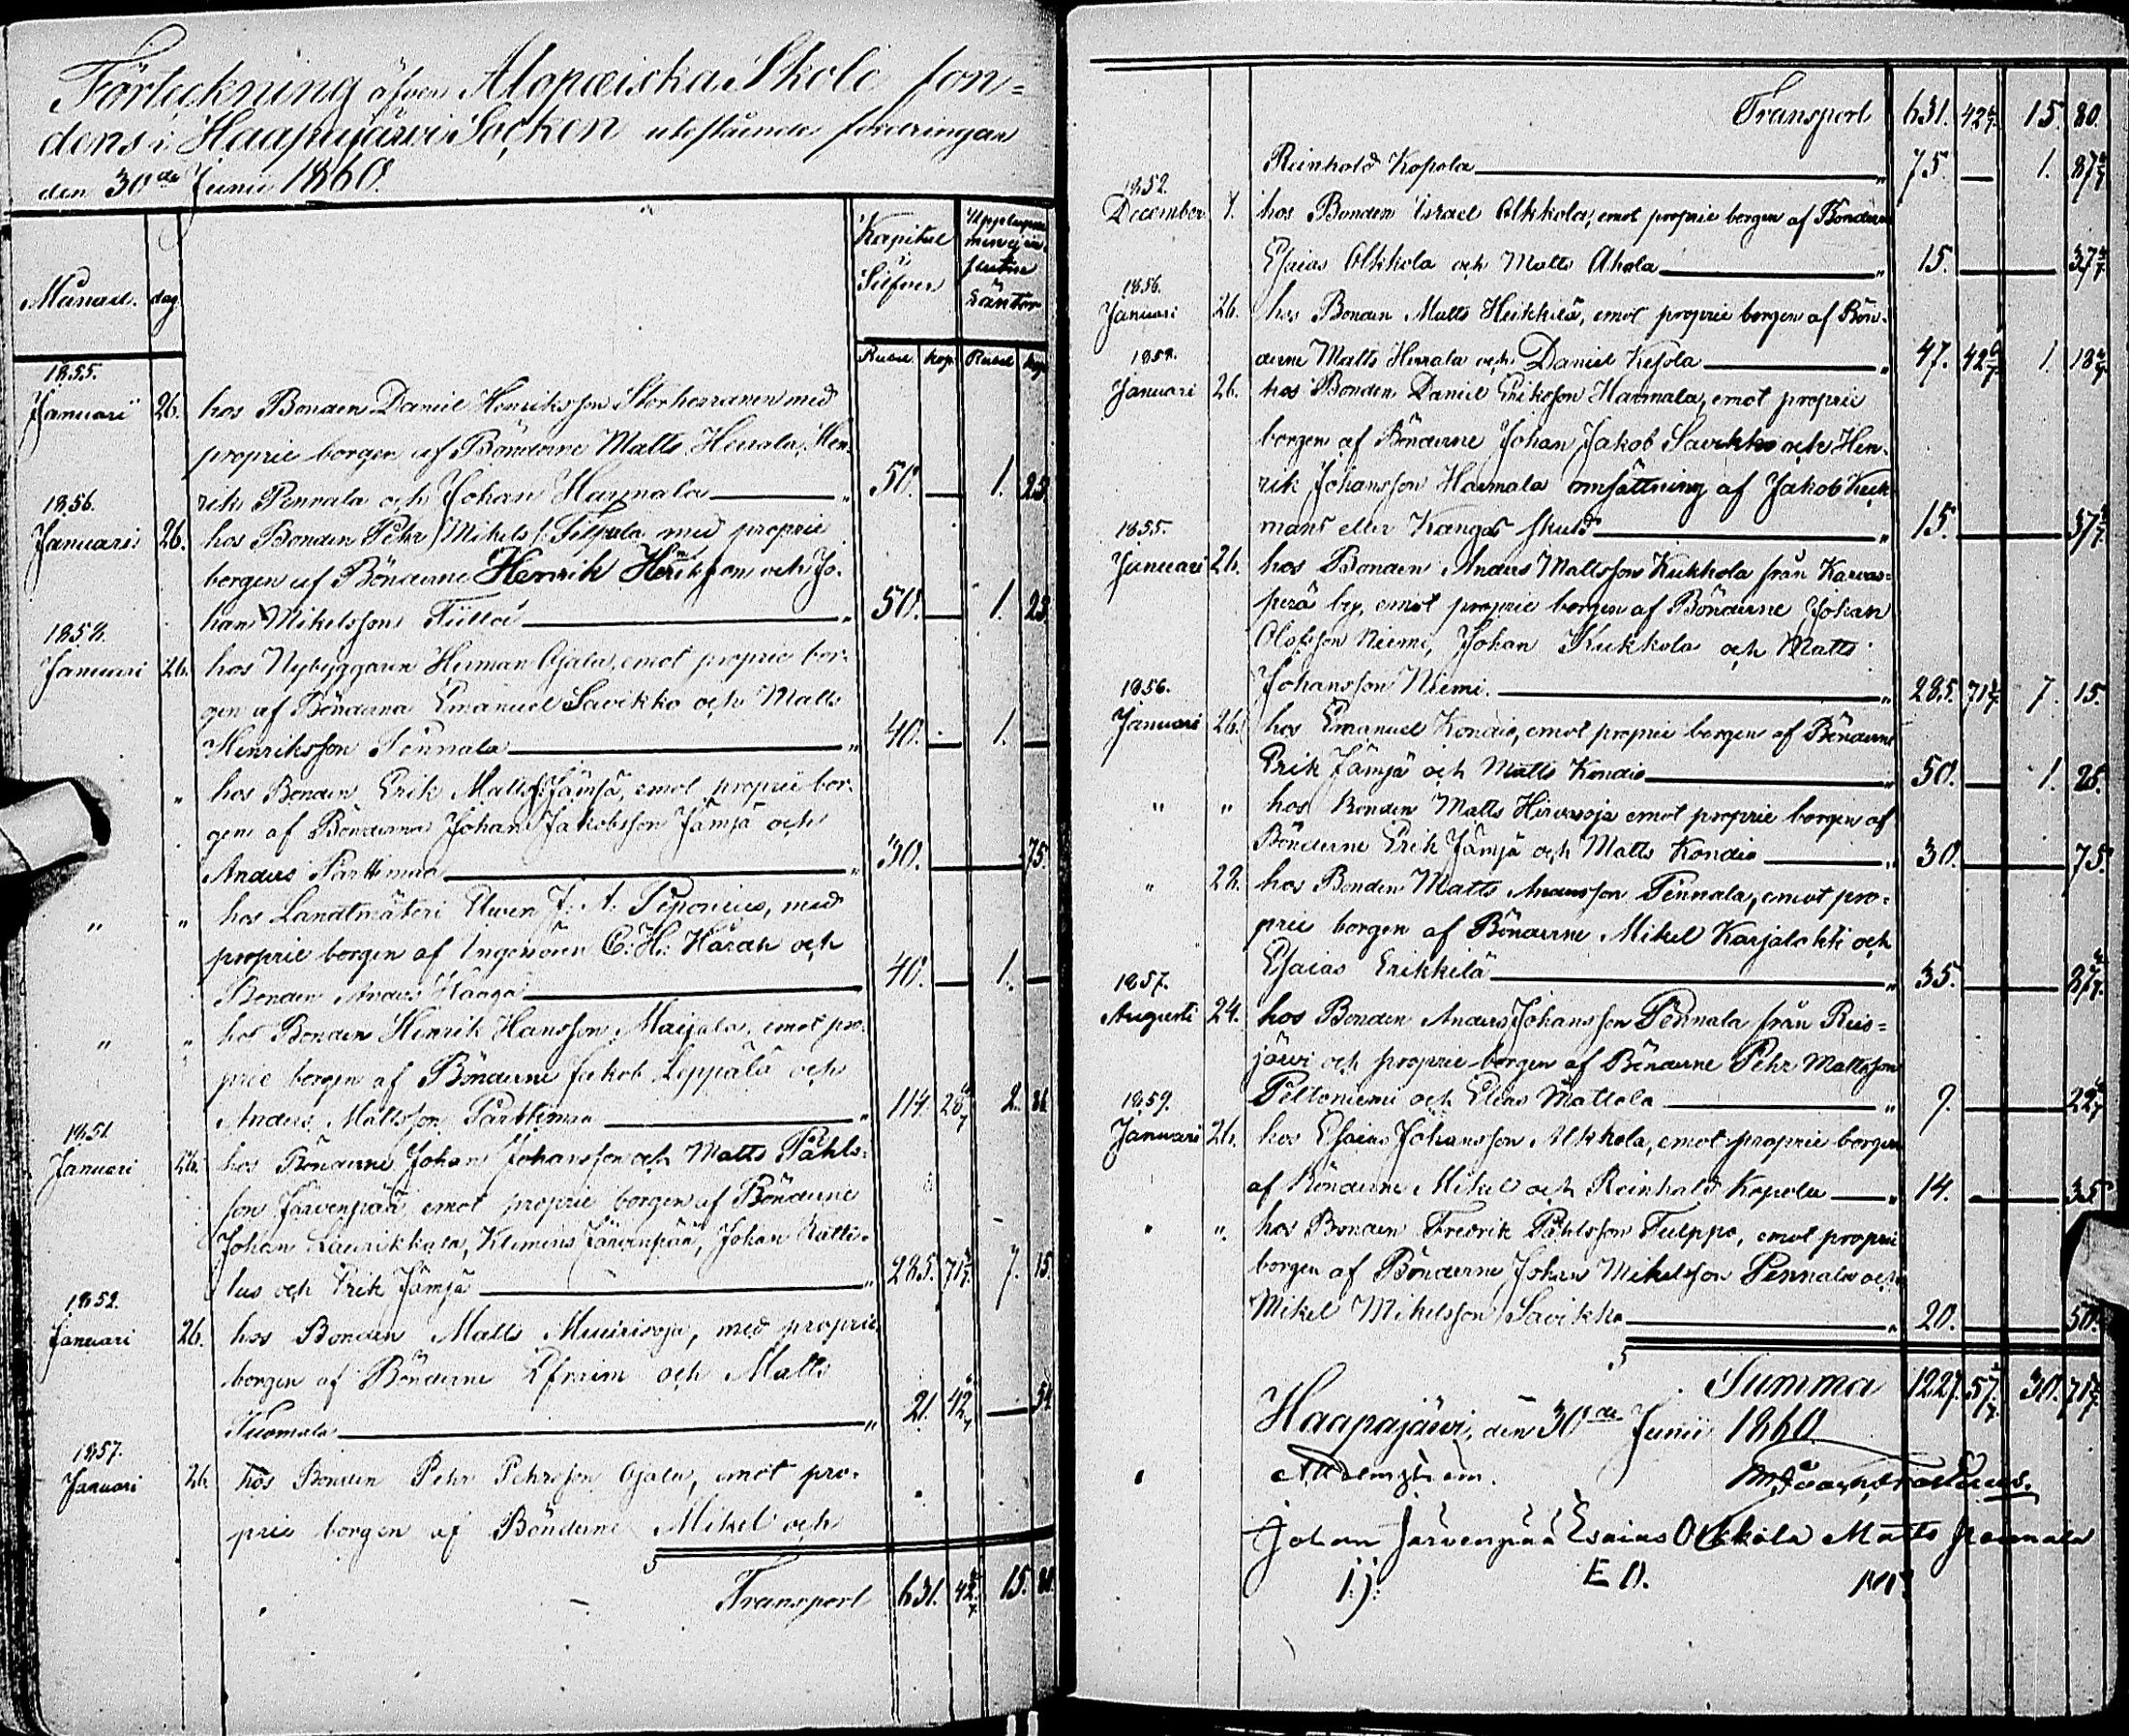 Förteckning öfver Alopæiska Skole fon=
dens i Haapajärvi Socken utestående fordringar
den 30de Junii 1860.
Månad. dag. Kapital i Silfver Upplupna men ej in, räntor
Rubel kop. Rubel kop.
1855.
Januari 26. hos Bonden Daniel Henriksson Storherranen med
proprie borgen af Bönderne Matts Herrala, Hen-
rik Pennala och Johan Harmala 50. — 1. 25
1856.
Januari 26. hos Bonden Pehr Mikels. Tilpula med proprie
borgen af Bönderne Henrik Henriksson och Jo-
han Mikelsson Tiitto 50. — 1. 25
1858.
Januari 26. hos Nybyggaren Herman Ojala, emot proprie bor-
gen af Bönderna Emanuel Savikko och Matts
Henriksson Pennala „ 40. — 1. —
„ hos Bonden Erik Matts. Jämsä, emot proprie bor-
gen af Bönderna Johan Jakobsson Jämsä och
Anders Parttimaa „ 30. — — 75.
„ „ hos Landtmäteri Eleven J. A. Peponius, med
proprie borgen af Ingeniören C. H. Hårdh och
Bonden Anders Haaga 40. — 1. —
„ „ hos Bonden Henrik Hansson Maijala, emot pro-
prie borgen af Bönderne Jakob Leppälä och
Anders Mattsson Parttimaa „ 114. 28 4/7 2. 86
1851.
Januari 26. hos Bönderne Johan Johansson och Matts Påhls-
son Järvenpää emot proprie borgen af Bönderne
Johan Laurikkala, Klemens Järvenpää, Johan
lus och Erik Jämsä „ 285. 71 3/7. 7. 15.
1852.
Januari 26. hos Bonden Matts Muurisoja, med proprie
borgen af Bönderne Efraim och Matts
Tuomala „ 21. 42 6/7 — 54
1857.
Januari 26. hos Bonden Pehr Pehrsson Ojala, emot pro-
prie borgen af Bönderne Mikel och
Transport 631. 42 6/7. 15. 80.
Transport 631. 42 6/7. 15. 80.
Reinhold Kopola „ 75 — 1. 87 4/7
1852.
December 8. hos Bonden Israel Olkkola, emot proprie borgen af Bönderne
Esaias Olkkola och Matts Ahola „ 15. — — 37 4/7
1856.
Januari 26. hos Bonden Matts Heikkilä, emot proprie borgen af Bön-
derne Matts Herrala och Daniel Kesola „ 47. 42 6/7 1. 18 4/7
1858.
Januari 26. hos Bonden Daniel Eriksson Harmala, emot proprie
borgen af Bönderne Johan Jakob Savikko och Hen-
rik Johansson Harmala omsättning af Jakob
mans eller Kangas skuld „ 15. — — 37 4/7.
1855.
Januari 26. hos Bonden Anders Mattsson Kukkola från Karvas=
perä by, emot proprie borgen af Bönderne Johan
Olofsson Niemi, Johan Kukkola och Matts
Johansson Niemi. „ 285. 71 3/7 7. 15.
1856.
Januari 26. hos Emanuel Kondio, emot proprie borgen af Bönderne
Erik Jämsä och Matts Kondio „ 50. — 1. 25.
„ „ hos Bonden Matts Hirvasoja emot proprie borgen af
Bönderne Erik Jämsä och Matts Kondio „ 30. — — 75.
„ 28. hos Bonden Matts Andersson Pennala, emot pro-
prie borgen af Bönderne Mikel Karjalahti och
Esaias Erikkilä „ 35. — — 87 4/7.
1857.
Augusti 24. hos Bonden Anders Johansson Pennala från Reis=
järvi och proprie borgen af Bönderne Pehr Mattsson
Peltoniemi och Elias Mattola „ 9. — — 22 4/7
1859.
Januari 26. hos Esaias Johansson Olkkola, emot proprie borgen
af Bönderne Mikel och Reinhold Kopola „ 14. — — 35
„ „ hos Bonden Fredrik Påhlsson Tulppo, emot proprie
borgen af Bönderne Johan Mikelsson Pennala och
Mikel Mikelsson Savikko „ 20. — — 50.
Summa 1227. 57 1/7. 30. 71 3/7.
Haapajärvi, den 30de Junii 1860.
Johan Järvenpää Esaias Olkkola Matts Pennala
I.J. E O. M P